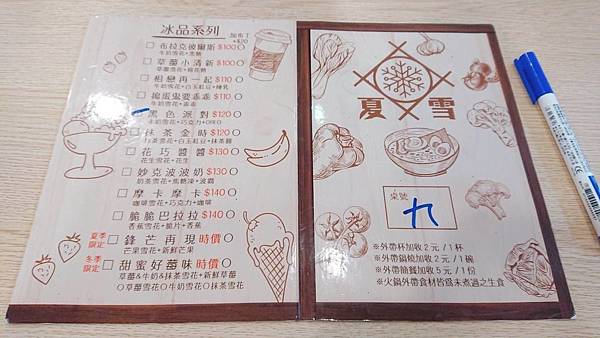 冰品系列
加布丁
+$20
布拉克彼爾斯$100
牛奶雪花+黑糖
草蕾小清新$100
草蕾雪花+棉花糖
相戀再一起$110
牛奶雪花+白玉紅豆+煉乳
搗蛋鬼要乖乖$110
牛奶雪花+乖乖
黑色派對$120
牛奶雪花+巧克力+OREO
抹茶金時$120
抹茶雪花+白玉紅豆+抹茶醬
花巧醬醬$130
花生雪花+花生
妙克波波奶$130
奶茶雪花+焦糖凍+波霸
摩卡摩卡$140
咖啡雪花+巧克力+咖啡
脆脆巴拉拉$140
香蕉雪花+脆片+香蕉
夏季
限定
鋒芒再現時價
芒果雪花+新鮮芒果
冬季
限定
甜蜜好莓味時價
草蕾&牛奶&抹茶雪花+新鮮草蕾
草蕾雪花 牛奶雪花 抹茶雪花
夏雪
桌號
九
※外帶杯加收2元/1杯
※外帶鍋燒加收2元/1碗
※外帶簡餐加收5元/1份
※火鍋外帶食材皆為未煮過之生食